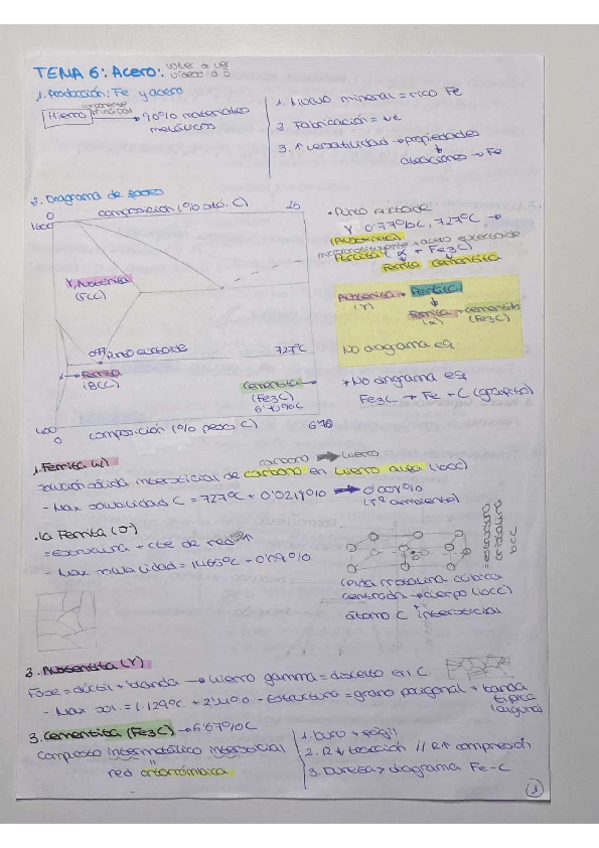 TEMA 6: Acero:
1. Producción: Fe y acero
Hierro → 90% materiales
metálicos
1. Mucho mineral = rico Fe
2. Fabricación =
3. ↑ versatilidad → propiedades
aleaciones → Fe
2. Diagrama de fases
0 composición (% ató. C) 25
1600
γ, Austenita
(FCC)
Punto eutectoide 727ºC
α → Ferrita
(BCC)
Cementita
(Fe3C)
6'70%C
400
0 composición (% peso C) 6'70
• Punto eutectoide
γ 0'77%C, 727ºC →
(Austenita)
Perlita (α + Fe3C)
Ferrita Cementita
Austenita → Perlita
(γ)
Ferrita + cementita
(α) (Fe3C)
No diagrama eq.
* No diagrama eq
Fe3C → Fe + C (grafito)
1. Ferrita (α)
carbono → hierro
solución sólida intersticial de carbono en hierro alfa (bcc)
- Max solubilidad C = 727ºC + 0'0219% → 0'008%
(Tª ambiente)
• la Ferrita (δ)
= estructura + cte de red
- Max solubilidad = 1465ºC + 0'09%
= estructura
cristalina
bcc
celda cristalina cúbica
centrada → cuerpo (bcc)
átomo C → intersticial
3. Austenita (γ)
Fase = dúctil + blanda → hierro gamma = disuelto en C
- Max sol. = 1.129ºC + 2'11% - Estructura = grano poligonal + banda
típica
(alguna)
3. Cementita (Fe3C) → 6'67%C
compuesto intermetálico intersticial
red ortorrómbica
1. Duro + frágil
2. R↓ tracción // R↑ compresión
3. Dureza > diagrama Fe-C
1